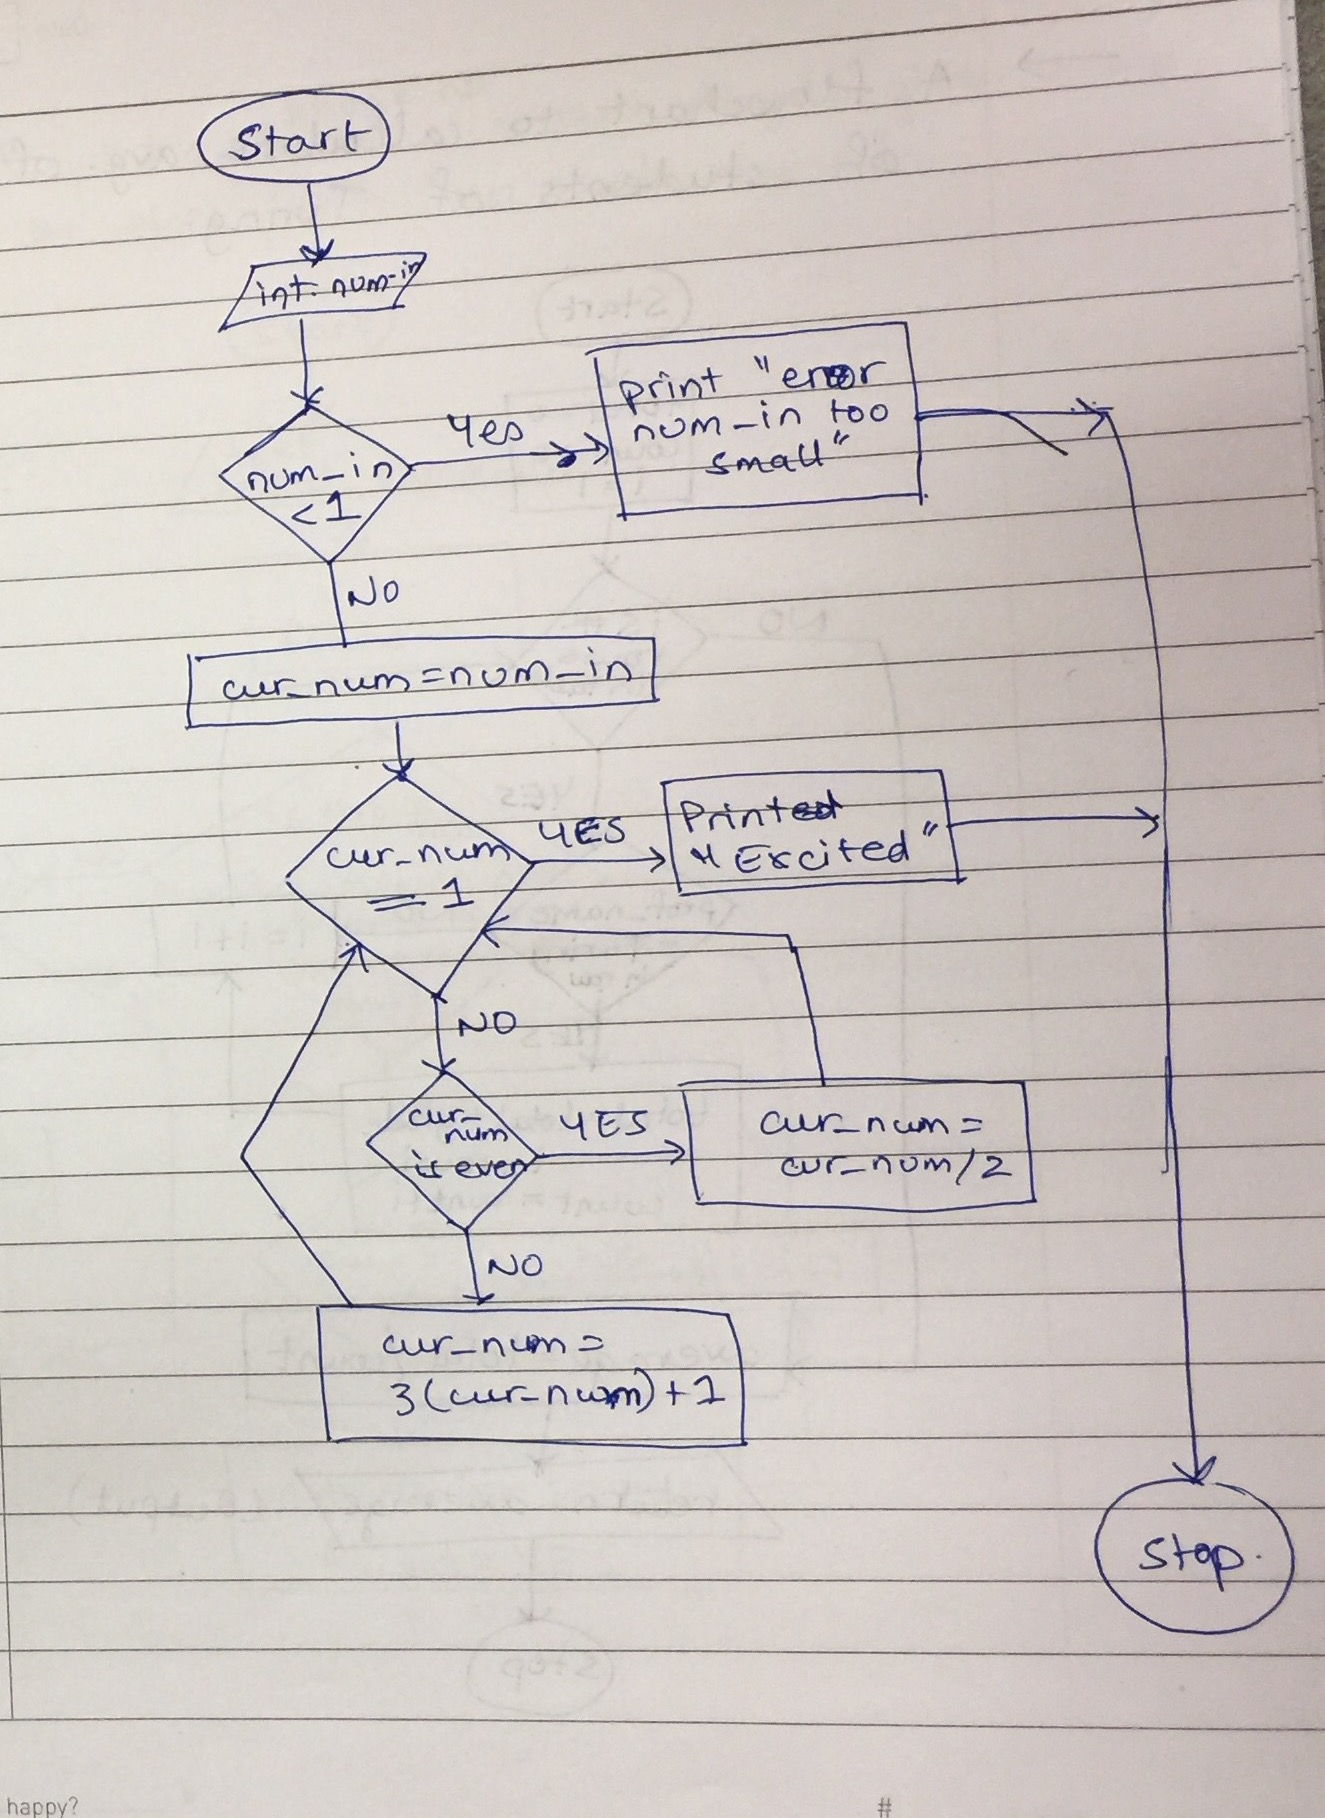 Start
int num-in
num_in
<1
Yes
print "error
num_in too
small"
NO
cur_num=num_in
cur_num
== 1
YES
Printed
"Excited"
NO
cur_
num
is even
YES
cur_num =
cur_num/2
NO
cur_num =
3(cur_num)+1
Stop.
happy?
#